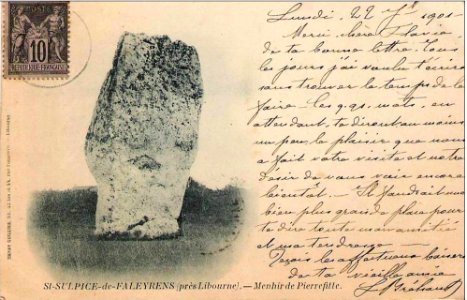 Lundi, 22 1901
Merci, chère
de ta bonne lettre. Tous
les jours j'ai voulu t'écrire
sans trouver le temps de le
faire. Ces qqs mots, en
attendant, te diront au moins
un peu, le plaisir que nous
a fait votre visite et notre
désir de vous voir encore
bientôt. Il faudrait un
bien plus grand pour
te dire toute mon amitié
et ma tendresse.
affectueux baisers
de ta vieille amie
10
ST-SULPICE-de-FALEYRENS (près Libourne). — Menhir de Pierrefitte.